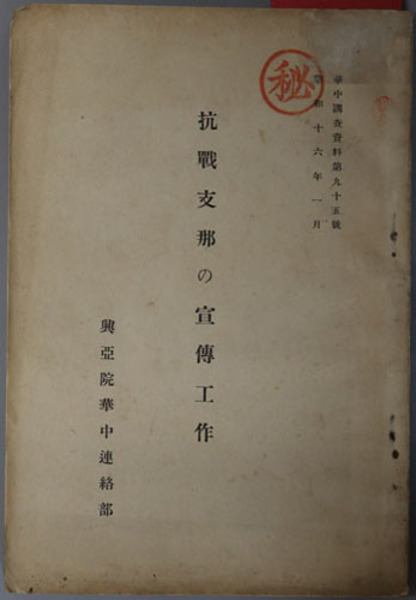 華中調査資料第九十五號
昭和十六年一月
秘
抗戰支那の宣傳工作
興亞院華中連絡部